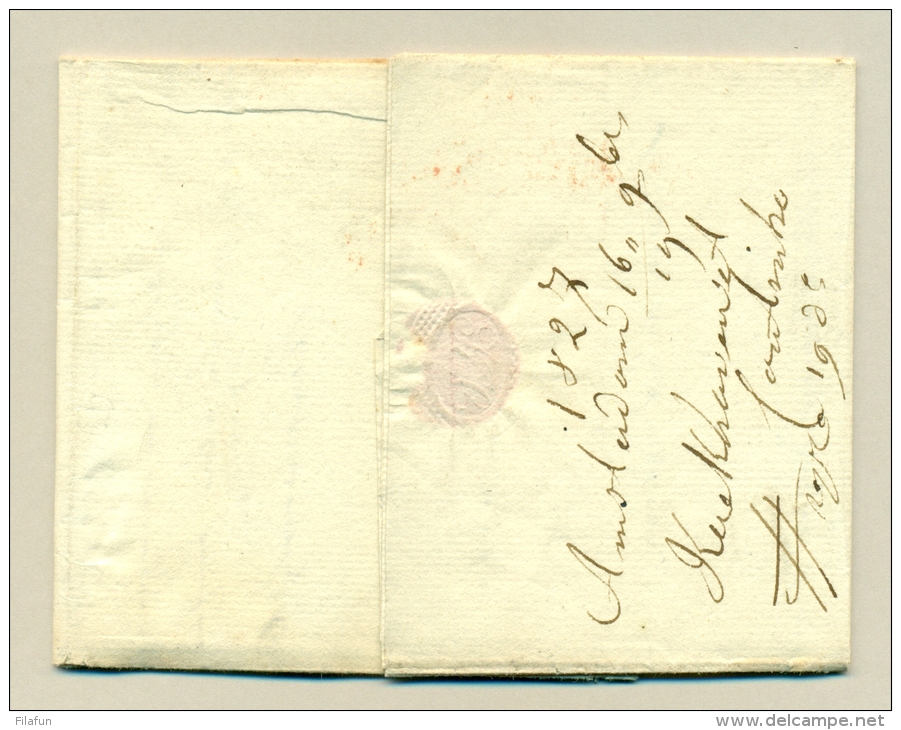 1827
Amsterdam 16 9br
19
Kerkhoven &
Coutinho
19 do
Filafun
www.delcampe.net